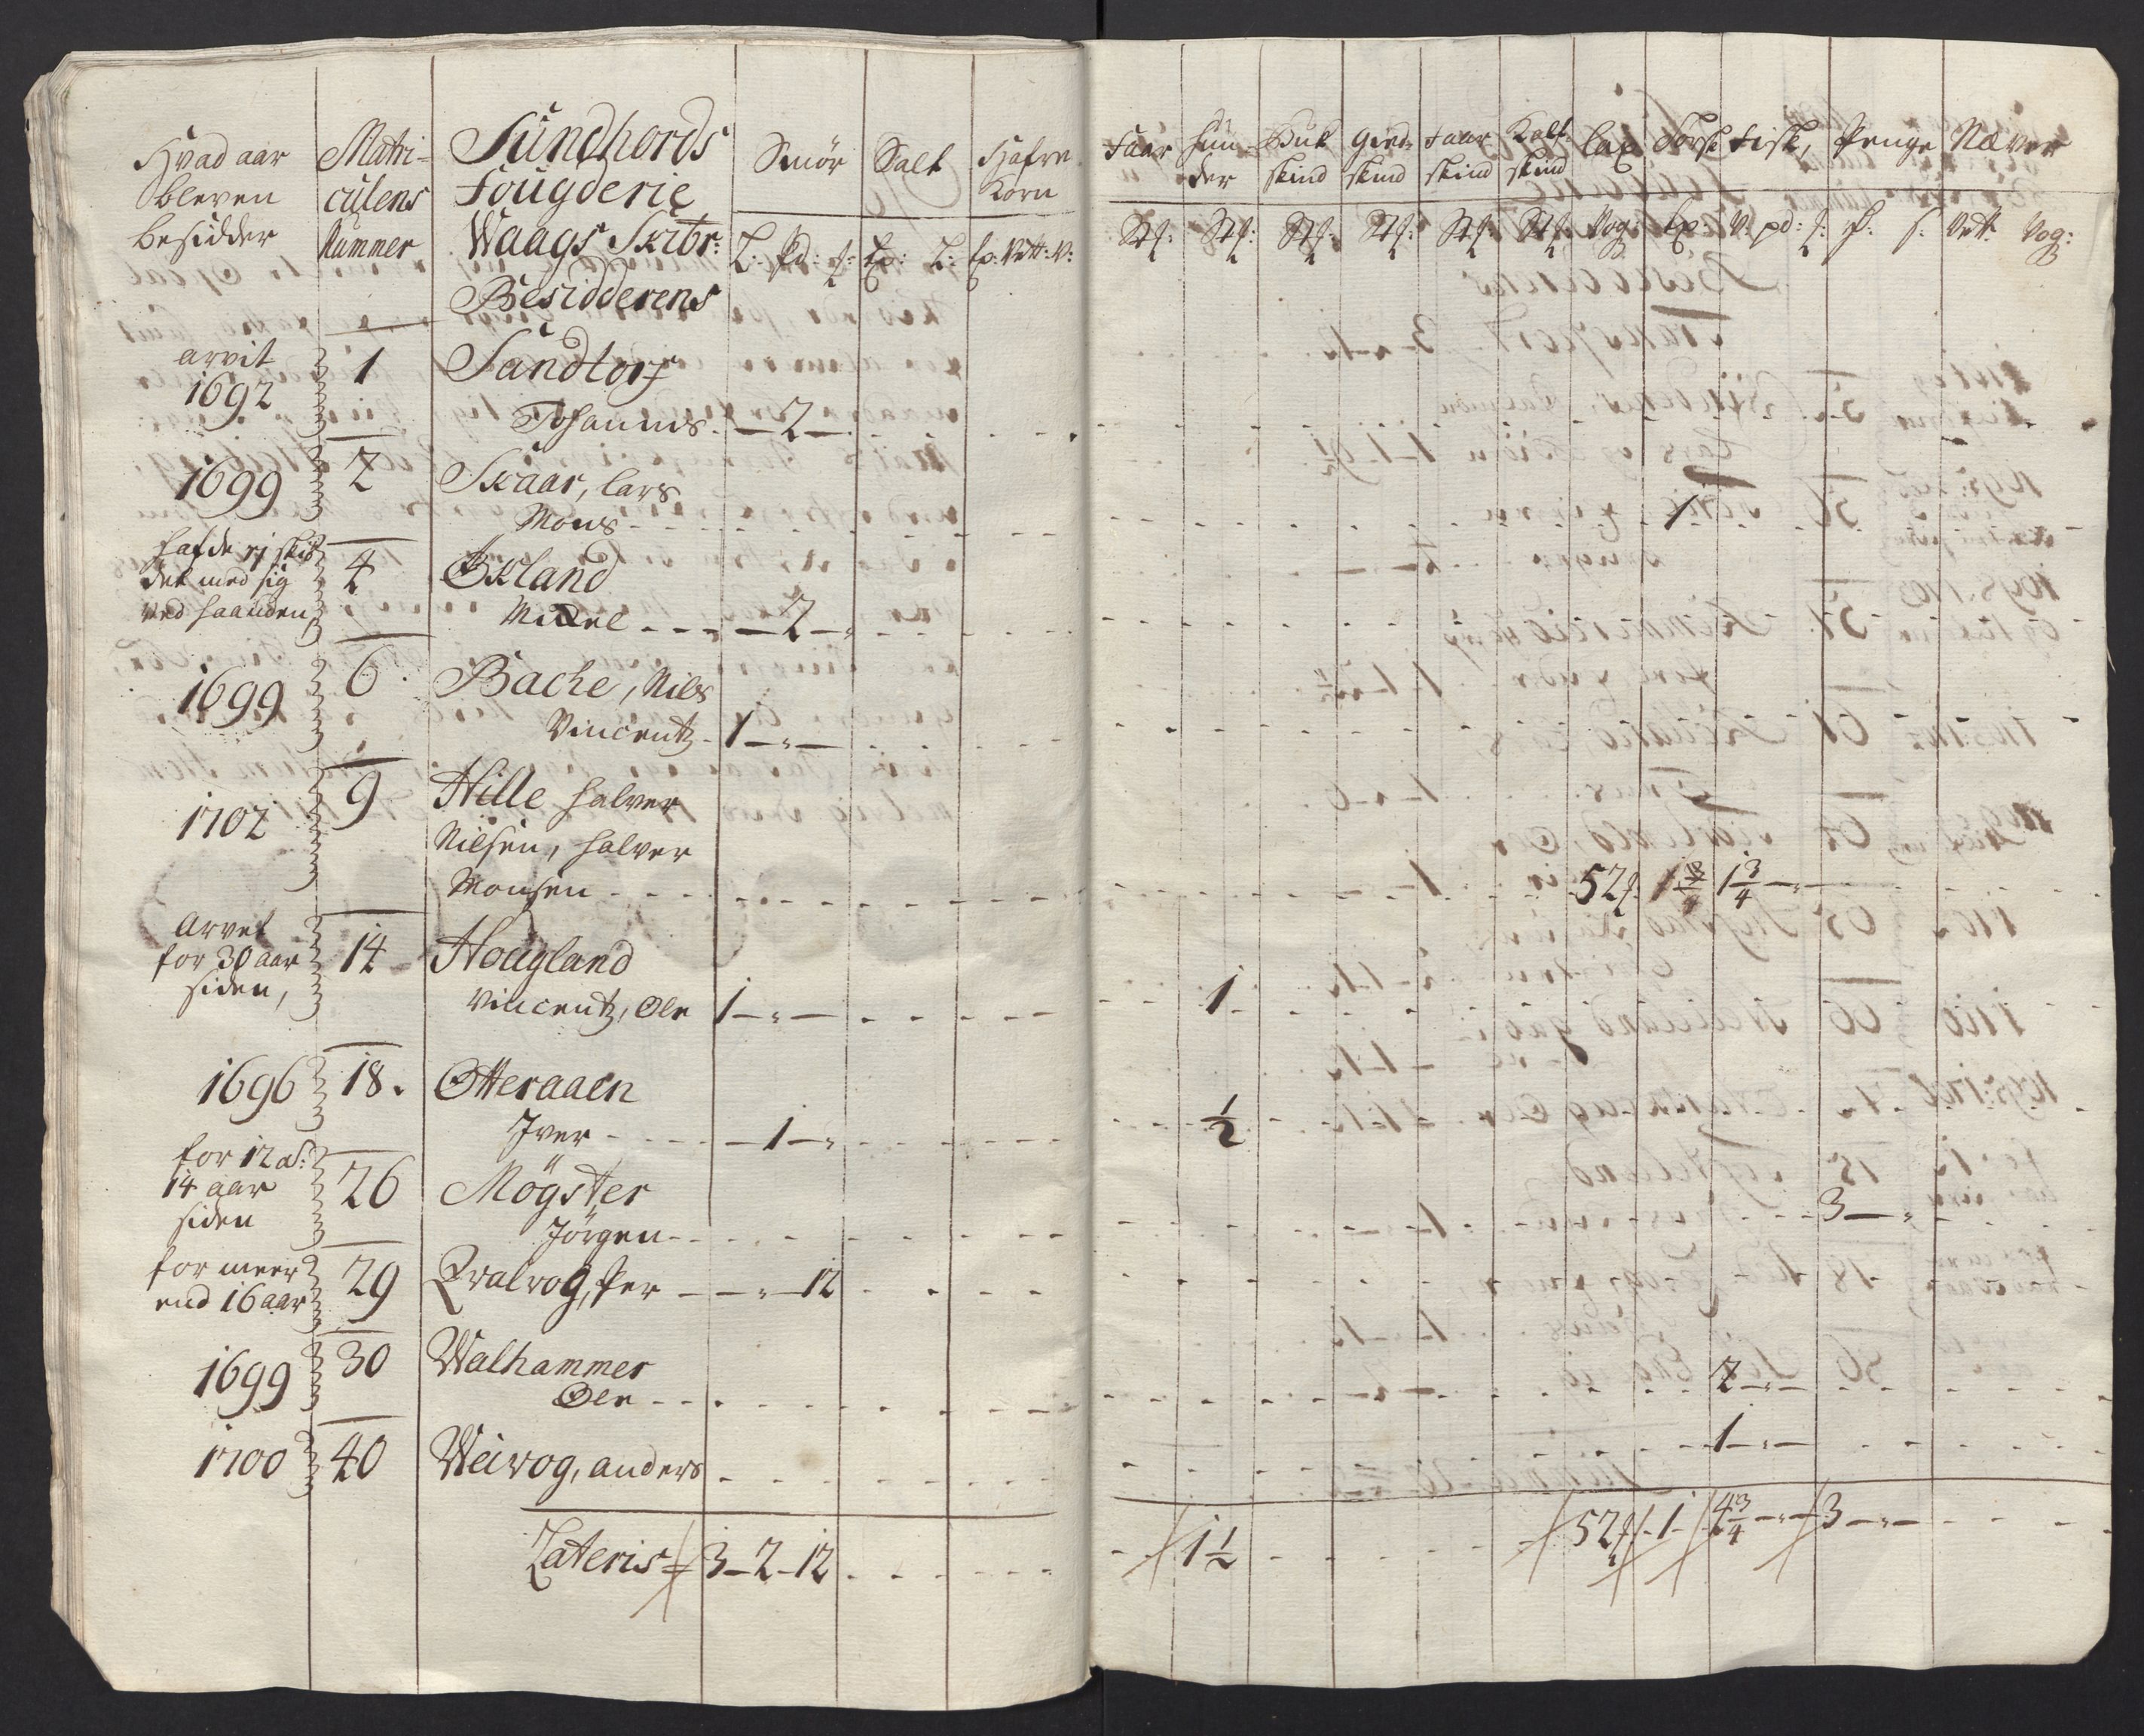 Hvad aar bleven besidder | Matriculens Nummer | Sündhords Fougderie Waags Skibr: Besidderens | Smör | Salt | Hafre Korn | Faar | Hun-der | Buk skind | Gied skind | Faar skind | Kalf skind | Lax | Torsk | Fisk, | Penge | Næver
L: Pd: | L: | Vett: V: | Stk: | Stk: | Stk: | Stk: | Stk: | Stk: | Vog: | V: pd: | Vett: Vog:
arvit 1692 | 1 | Sandtorf
Johannes - 2 -
1699 | 2 | Skaar, Lars
Mons - - - 1
hafde ej skif
det med sig
ved haanden | 4 | Økland
Mikel - - - 2 -
1699 | 6 | Bache, Nils
Vincentz - 1 - " -
1702 | 9 | Hille Halver
Nilsen, Halver
Monsen - - - 52 | 1 3/4 -
Arvet
for 30 aar
siden, | 14 | Hougland
Vincentz, Ole 1 - " - | 1
1696 | 18. | Otteraaen
Iver - - - 1 - " | 1/2
for 12 a:
14 aar
siden | 26 | Mögster
Jörgen - - - 3 - "
for meer
end 16 aar | 29 | Qvalvog, Per - - " - 12
1699 | 30 | Walhammer
Ole - - - 2 - " -
1700 | 40 | Weivog, anders - - - 1 - " -
Lateris 3 - 2 - 12 | 1 1/2 | 52 | 1 | 4 3/4 - " - | 3 - " -